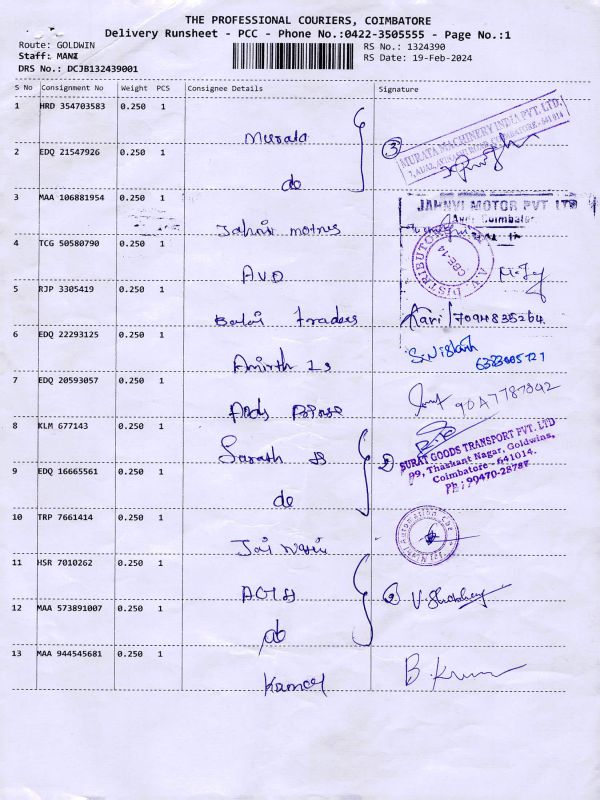 THE PROFESSIONAL COURIERS, COIMBATORE
Delivery Runsheet - PCC - Phone No.:0422-3505555 - Page No.:1
Route: GOLDWIN
RS No.: 1324390
Staff: MANI
RS Date: 19-Feb-2024
DRS No.: DCJB132439001
S No Consignment No Weight PCS Consignee Details Signature
1 HRD 354703583 0.250 1
Murata
3
MURATA MACHINERY INDIA PVT. LTD.
2 EDQ 21547926 0.250 1
do
3 MAA 106881954 0.250 1
Jahnvi motors
JAHNVI MOTOR PVT LTD
4 TCG 50580790 0.250 1
A.V.D
A.V. DISTRIBUTOR
CBE-14
5 RJP 3305419 0.250 1
Balaji traders
Hari / 7094835264
6 EDQ 22293125 0.250 1
Amirth
6383005721
7 EDQ 20593057 0.250 1
8 KLM 677143 0.250 1
Sarath
2
SURAT GOODS TRANSPORT PVT. LTD
99, Thaskant Nagar, Goldwins,
Coimbatore - 641014.
Ph : 90470-28787
9 EDQ 16665561 0.250 1
do
10 TRP 7661414 0.250 1
Jai
11 HSR 7010262 0.250 1
2
12 MAA 573891007 0.250 1
do
13 MAA 944545681 0.250 1
B. Kum